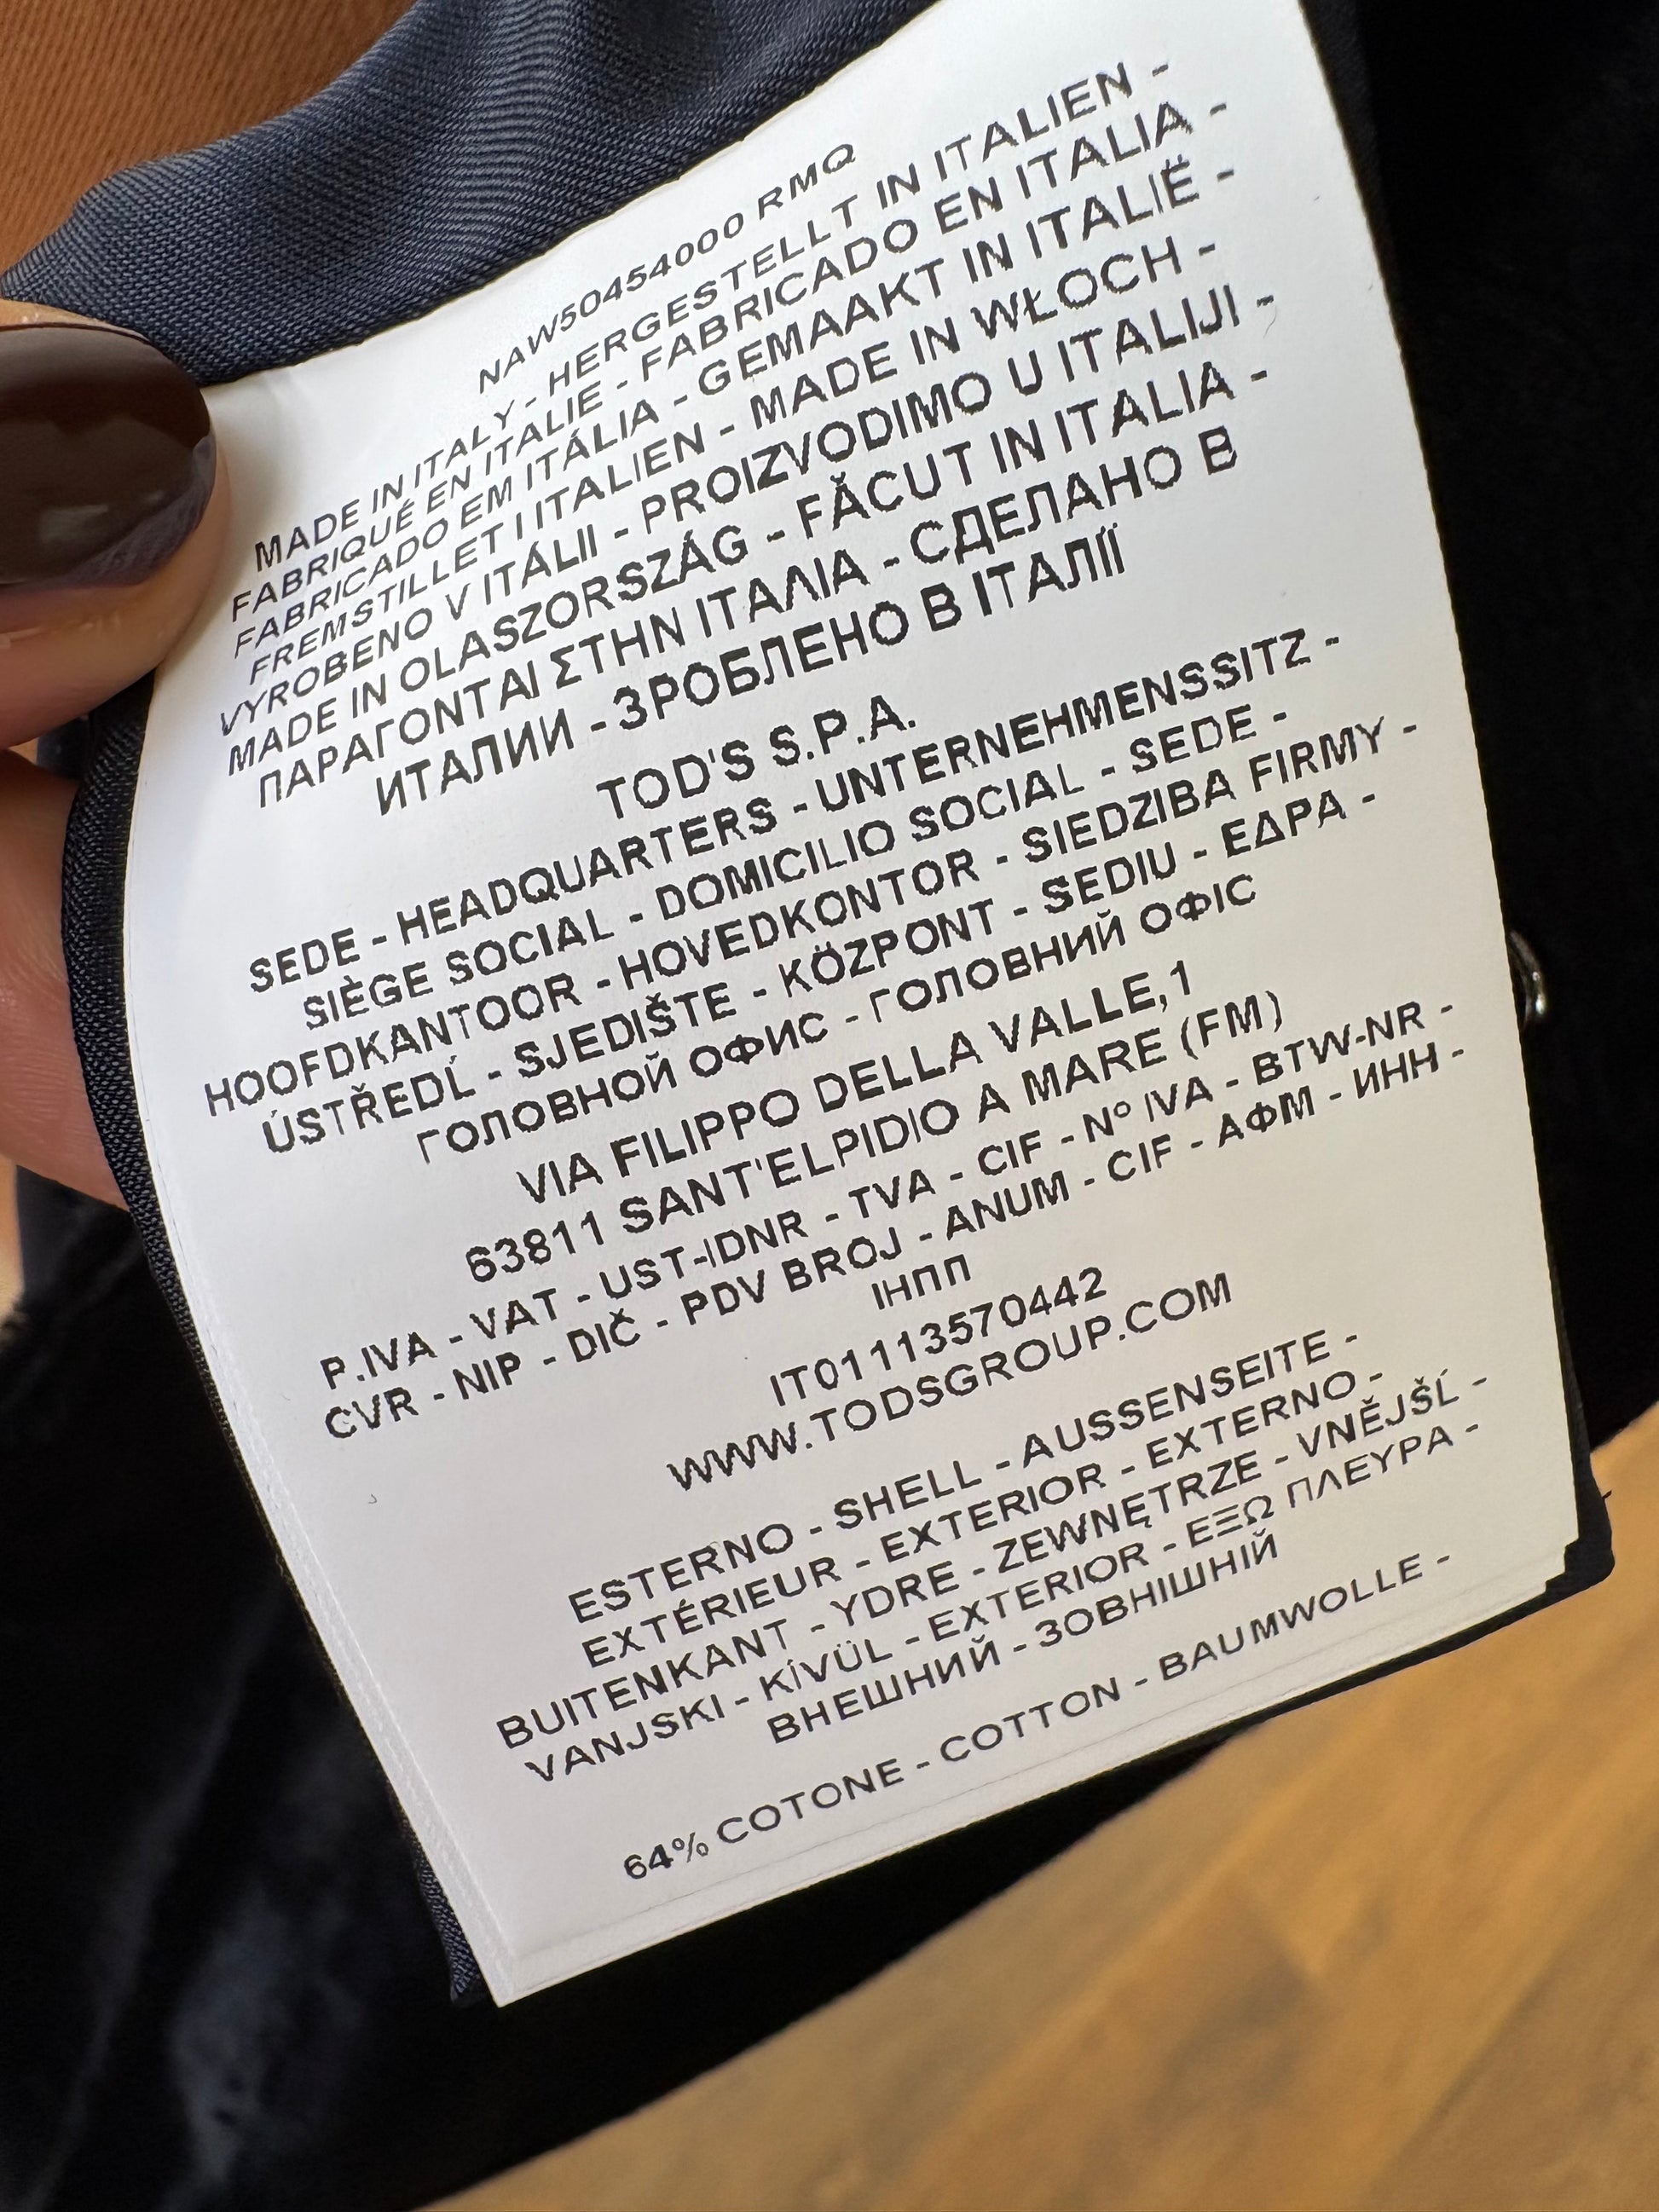 NAW50454000 RMQ
MADE IN ITALY - HERGESTELLT IN ITALIEN -
FABRIQUÉ EN ITALIE - FABRICADO EN ITALIA -
FABRICADO EM ITÁLIA - GEMAAKT IN ITALIË -
FREMSTILLET I ITALIEN - MADE IN WŁOCH -
VYROBENO V ITÁLII - PROIZVODIMO U ITALIJI -
MADE IN OLASZORSZÁG - FĂCUT IN ITALIA -
ΠΑΡΑΓΟΝΤΑΙ ΣΤΗΝ ΙΤΑΛΙΑ - СДЕЛАНО В
ИТАЛИИ - ЗРОБЛЕНО В ІТАЛІЇ
TOD'S S.P.A.
SEDE - HEADQUARTERS - UNTERNEHMENSSITZ -
SIÈGE SOCIAL - DOMICILIO SOCIAL - SEDE -
HOOFDKANTOOR - HOVEDKONTOR - SIEDZIBA FIRMY -
ÚSTŘEDĹ - SJEDIŠTE - KÖZPONT - SEDIU - ΕΔΡΑ -
ГОЛОВНОЙ ОФИС - ГОЛОВНИЙ ОФІС
VIA FILIPPO DELLA VALLE,1
63811 SANT'ELPIDIO A MARE (FM)
P.IVA - VAT - UST-IDNR - TVA - CIF - N° IVA - BTW-NR -
CVR - NIP - DIČ - PDV BROJ - ANUM - CIF - ΑΦΜ - ИНН -
ІНПП
IT01113570442
WWW.TODSGROUP.COM
ESTERNO - SHELL - AUSSENSEITE -
EXTÉRIEUR - EXTERIOR - EXTERNO -
BUITENKANT - YDRE - ZEWNĘTRZE - VNĚJŠĹ -
VANJSKI - KÍVÜL - EXTERIOR - ΕΞΩ ΠΛΕΥΡΑ -
ВНЕШНИЙ - ЗОВНІШНІЙ
64% COTONE - COTTON - BAUMWOLLE -